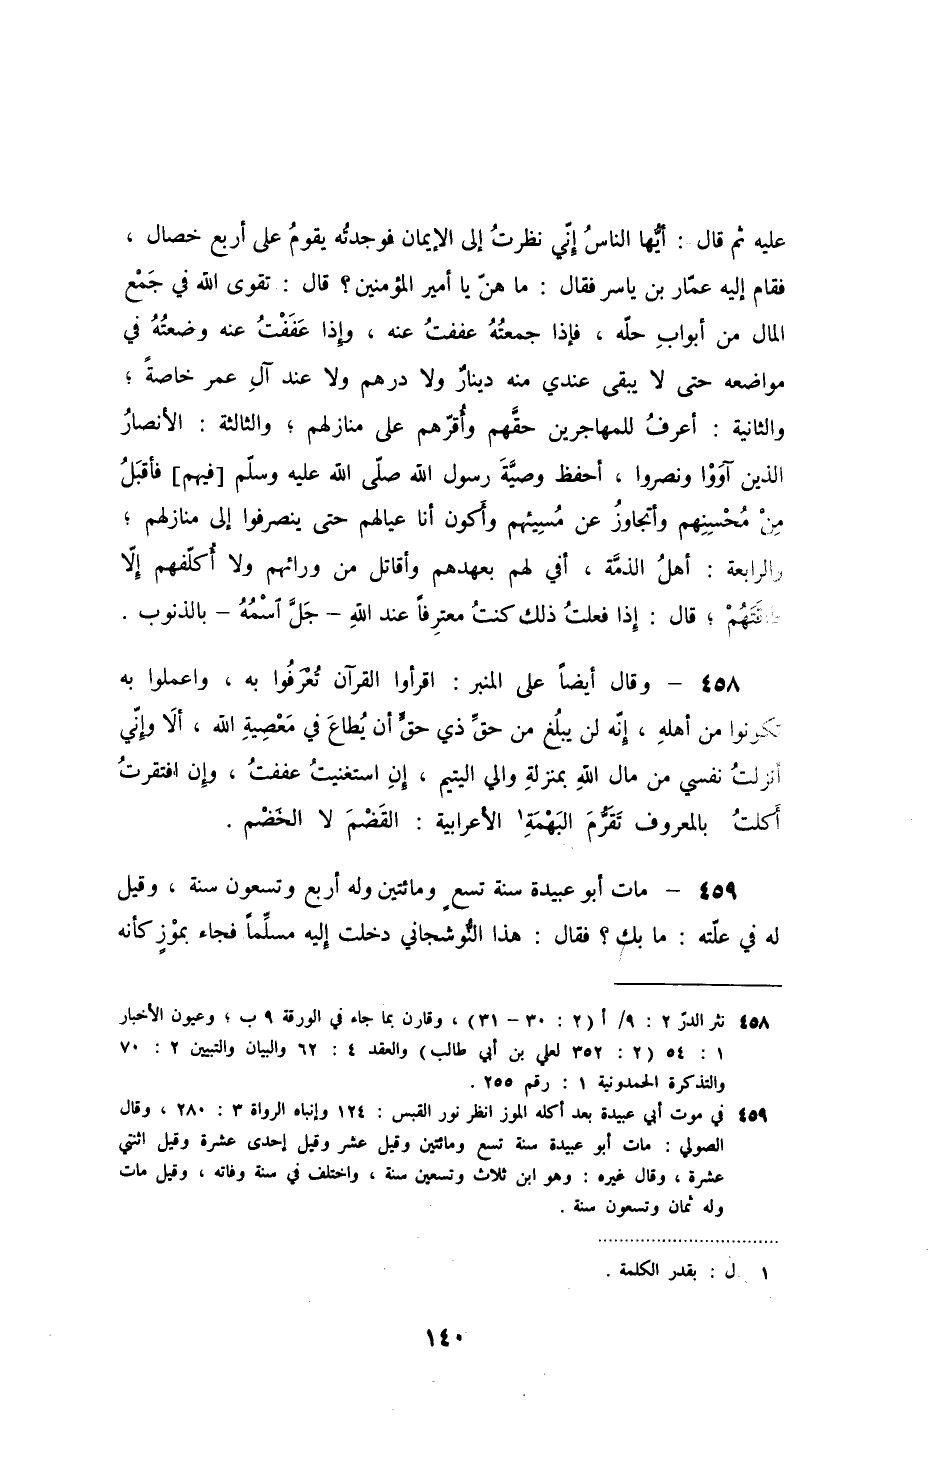 عليه ثم قال : أيُّها الناسُ إنّي نظرتُ إلى الإيمان فوجدتُه يقومُ على أربع خصال ،
فقام إليه عمّار بن ياسر فقال : ما هنّ يا أمير المؤمنين ؟ قال : تقوى الله في جَمْع
المال من أبوابِ حلّه ، فإذا جمعتُهُ عففتُ عنه ، وإذا عَفَفْتُ عنه وضعتُهُ في
مواضعه حتى لا يبقى عندي منه دينارٌ ولا درهم ولا عند آلِ عمر خاصةً ؛
والثانية : أعرفُ للمهاجرين حقَّهم وأُقرّهم على منازلهم ؛ والثالثة : الأنصارُ
الذين آوَوْا ونصروا ، أحفظ وصيَّةَ رسول الله صلّى الله عليه وسلّم [فيهم] فأقبَلُ
مِنْ مُحْسِنِهم وأتجاوزُ عن مُسِيئهم وأَكون أنا عيالهم حتى ينصرفوا إلى منازلهم ؛
والرابعة : أهلُ الذمَّة ، أفي لهم بعهدهم وأقاتل من ورائهم ولا أُكلّفهم إلّا
طاقَتَهُمْ ؛ قال : إذا فعلتُ ذلك كنتُ معترِفاً عند اللهِ - جَلَّ آسْمُهُ - بالذنوب .
٤٥٨ - وقال أيضاً على المنبر : اقرأوا القرآن تُعْرَفُوا به ، واعملوا به
تكونوا من أهلهِ ، إنّه لن يبلُغ من حقِّ ذي حقٍّ أن يُطاعَ في مَعْصِيةِ الله ، ألَا وإنّي
أنزلتُ نفسي من مال اللهِ بمنزلةِ والي اليتيم ، إنِ استغنيتُ عففتُ ، وإن افتقرتُ
أَكلتُ بالمعروف تَقَرُّمَ البَهْمَةِ١ الأعرابية : القَضْمَ لا الخَضْم .
٤٥٩ - مات أبو عبيدة سنة تسعٍ ومائتين وله أربع وتسعون سنة ، وقيل
له في علّته : ما بك ؟ فقال : هذا النُّوشجاني دخلت إليه مسلِّماً فجاء بموْزٍ كأنه
٤٥٨ نثر الدرّ ٢ : ٩/ أ (٢ : ٣٠ - ٣١) ، وقارن بما جاء في الورقة ٩ ب ؛ وعيون الأخبار
١ : ٥٤ (٢ : ٣٥٢ لعلي بن أبي طالب) والعقد ٤ : ٦٢ والبيان والتبيين ٢ : ٧٠
والتذكرة الحمدونية ١ : رقم ٢٥٥ .
٤٥٩ في موت أبي عبيدة بعد أكله الموز انظر نور القبس : ١٢٤ وإنباه الرواة ٣ : ٢٨٠ ، وقال
الصولي : مات أبو عبيدة سنة تسع ومائتين وقيل عشر وقيل إحدى عشرة وقيل اثنتي
عشرة ، وقال غيره : وهو ابن ثلاث وتسعين سنة ، واختلف في سنة وفاته ، وقيل مات
وله ثمان وتسعون سنة .
١ ل : بقدر الكلمة .
١٤٠